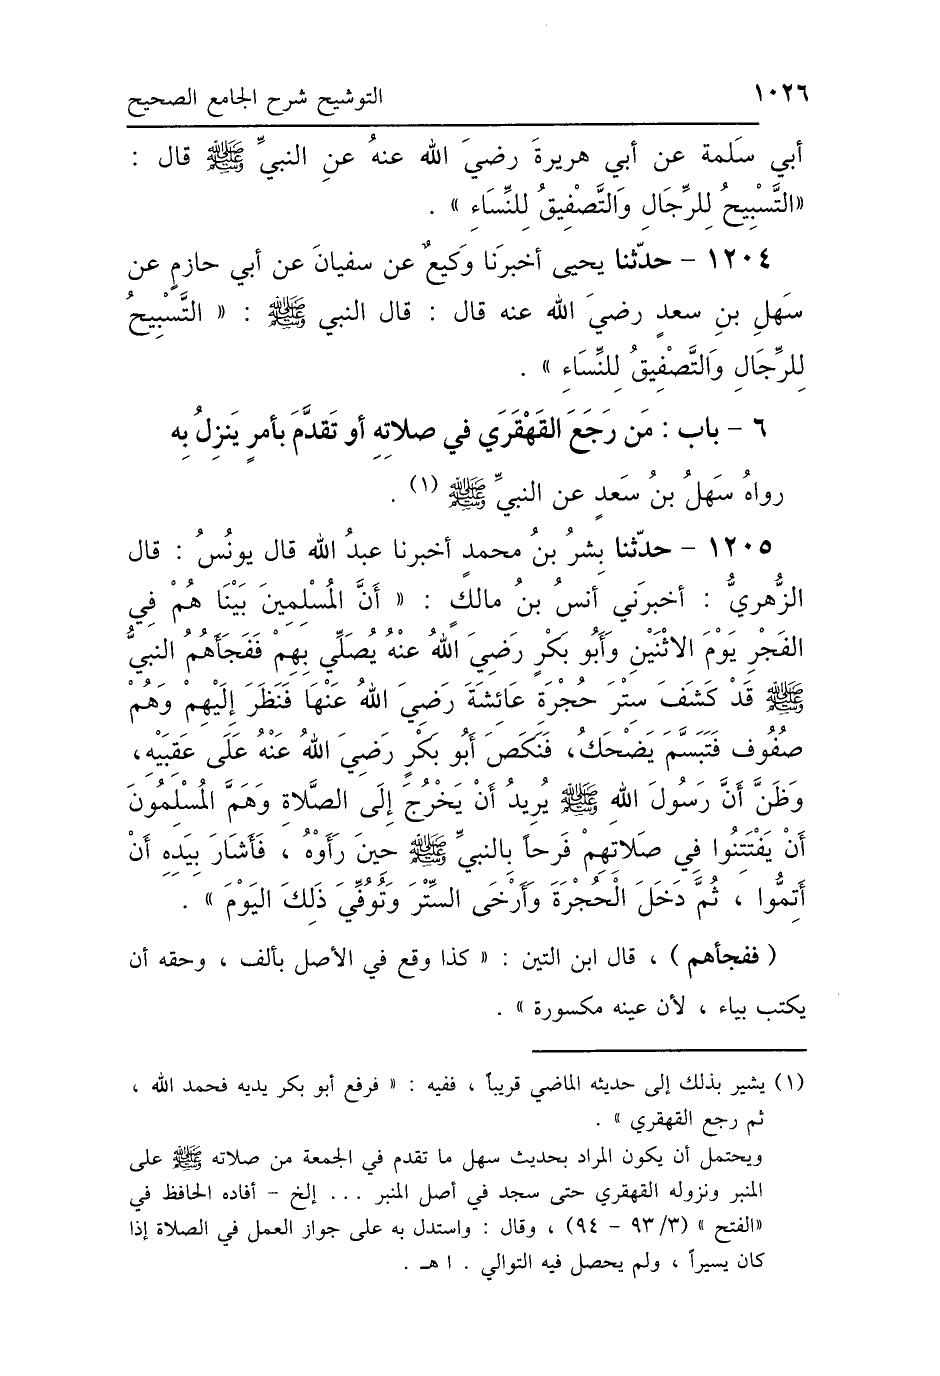 ١٠٢٦ التوشيح شرح الجامع الصحيح
أبي سَلَمة عن أبي هريرةَ رضيَ الله عنهُ عنِ النبيِّ ﷺ قال :
«التَّسْبِيحُ لِلرِّجَالِ وَالتَّصْفِيقُ لِلنِّسَاءِ » .
١٢٠٤ - حدّثنا يحيى أخبرَنا وَكيعٌ عن سفيانَ عن أبي حازمٍ عن
سَهلِ بنِ سعدٍ رضيَ الله عنه قال : قال النبي ﷺ : « التَّسْبِيحُ
لِلرِّجَالِ وَالتَّصْفِيقُ لِلنِّسَاءِ » .
٦ - باب : مَن رَجَعَ القَهْقَرَي في صلاتِهِ أو تَقدَّمَ بأمرٍ يَنزِلُ بِه
رواهُ سَهلُ بنُ سَعدٍ عن النبيِّ ﷺ (١) .
١٢٠٥ - حدّثنا بِشرُ بنُ محمدٍ أخبرنا عبدُ الله قال يونُسُ : قال
الزُّهريُّ : أخبرَني أنسُ بنُ مالكٍ : « أَنَّ المُسْلِمِينَ بَيْنَا هُمْ فِي
الفَجْرِ يَوْمَ الاثْنَيْنِ وَأَبُو بَكْرٍ رَضِيَ اللهُ عَنْهُ يُصَلِّي بِهِمْ فَفَجَأَهُمُ النبيُّ
ﷺ قَدْ كَشَفَ سِتْرَ حُجْرَةِ عَائِشَةَ رَضِيَ اللهُ عَنْهَا فَنَظَرَ إِلَيْهِمْ وَهُمْ
صُفُوف فَتَبَسَّمَ يَضْحَكُ، فَنَكَصَ أَبُو بَكْرٍ رَضِيَ اللهُ عَنْهُ عَلَى عَقِبَيْهِ،
وَظَنَّ أَنَّ رَسُولَ اللهِ ﷺ يُرِيدُ أَنْ يَخْرُجَ إِلَى الصَّلاةِ وَهَمَّ المُسْلِمُونَ
أَنْ يَفْتَتِنُوا فِي صَلاتِهِمْ فَرَحاً بِالنبيِّ ﷺ حِينَ رَأَوْهُ ، فَأَشَارَ بِيَدِهِ أَنْ
أَتِمُّوا ، ثُمَّ دَخَلَ الْحُجْرَةَ وَأَرْخَى السِّتْرَ وَتُوُفِّيَ ذَلِكَ اليَوْمَ » .
( ففجأهم ) ، قال ابن التين : « كذا وقع في الأصل بألف ، وحقه أن
يكتب بياء ، لأن عينه مكسورة » .
(١) يشير بذلك إلى حديثه الماضي قريباً ، ففيه : « فرفع أبو بكر يديه فحمد الله ،
ثم رجع القهقري » .
ويحتمل أن يكون المراد بحديث سهل ما تقدم في الجمعة من صلاته ﷺ على
المنبر ونزوله القهقري حتى سجد في أصل المنبر ... إلخ - أفاده الحافظ في
«الفتح » (٩٣/٣ - ٩٤) ، وقال : واستدل به على جواز العمل في الصلاة إذا
كان يسيراً ، ولم يحصل فيه التوالي . ا هـ .